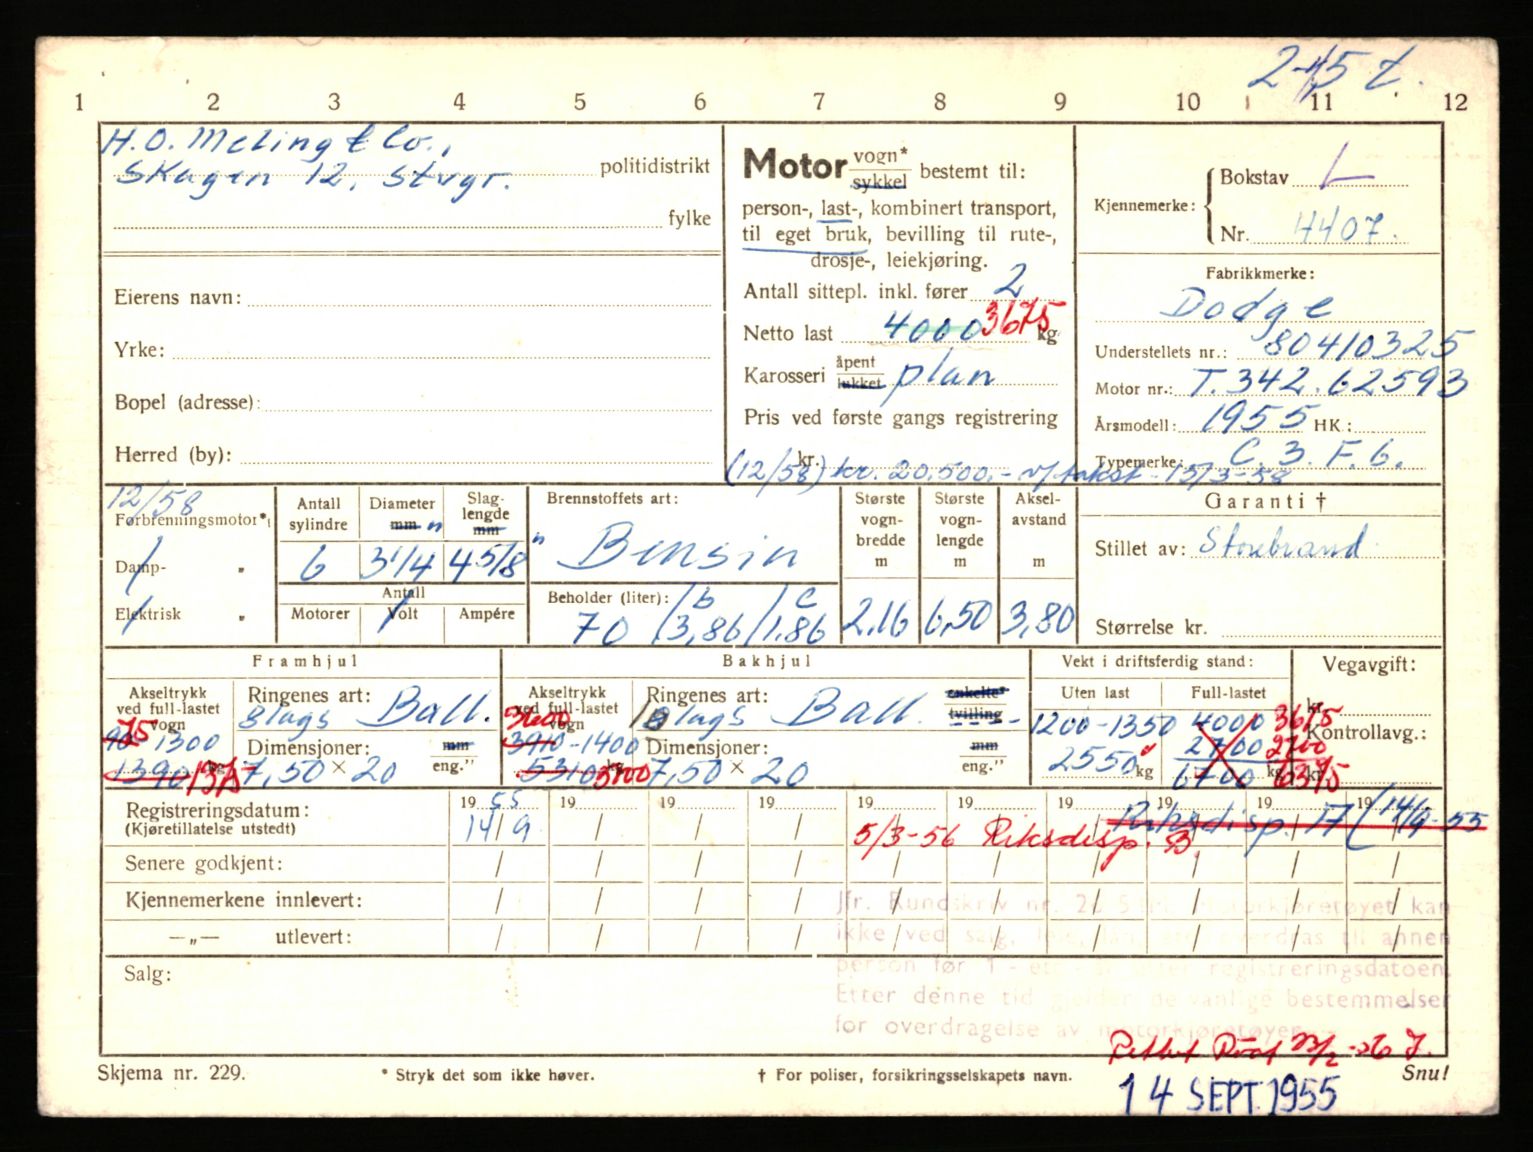 1 2 3 4 5 6 7 8 9 10 11 12
H.O. Meling & Co.,
Skagen 12, Stvgr. politidistrikt
fylke
Eierens navn:
Yrke:
Bopel (adresse):
Herred (by):
Motor vogn* sykkel bestemt til:
person-, last-, kombinert transport,
til eget bruk, bevilling til rute-,
drosje-, leiekjøring.
Antall sittepl. inkl. fører 2
Netto last 4000 3675 kg
Karosseri åpent lukket plan
Pris ved første gangs registrering
kr.
(12/58) kr. 20.500,- v/takst 13/3-58
Kjennemerke: Bokstav L
Nr. 4407.
Fabrikkmerke:
Dodge
Understellets nr.: 80410325
Motor nr.: T.342.62593
Årsmodell: 1955 HK:
Typemerke: C.3.F.6.
12/58
Forbrenningsmotor*
Damp- „
Elektrisk „
Antall sylindre 6
Diameter mm " 3 1/4
Slag-lengde mm " 4 5/8
Antall
Motorer Volt Ampére
Brennstoffets art:
Bensin
Beholder (liter): b c
70 /3,86 /1.86
Største vogn-bredde m 2.16
Største vogn-lengde m 6,50
Aksel-avstand m 3,80
Garanti †
Stillet av: Storebrand
Størrelse kr.
Framhjul
Akseltrykk ved full-lastet vogn
90 75 1300
1390 kg 1375
Ringenes art:
8lags Ball.
Dimensjoner: mm eng."
7,50 × 20
Bakhjul
Akseltrykk ved full-lastet vogn
3600
3910-1400
5310 kg 5000
Ringenes art: enkelte* tvilling
8lags Ball.
Dimensjoner: mm eng."
7,50 × 20
Vekt i driftsferdig stand:
Uten last Full-lastet
1200-1350 4000 3675
2550 kg 2700 2700
6700 kg 6375
Vegavgift:
kr.
Kontrollavg.:
kr.
Registreringsdatum:
(Kjøretillatelse utstedt)
19 55 19 19 19 19 19 19 19 19 19
14/9
Riksdisp. (14/9-55
5/3-56 Riksdisp. B.
Senere godkjent:
Kjennemerkene innlevert:
—„— utlevert:
Salg:
Jfr. Rundskriv nr. Motorkjøretøyet kan
ikke ved salg, overdras til annen
person før 1 - ett - år etter registreringsdatoen.
Etter denne tid gjelder de vanlige bestemmelser
for overdragelse av motorkjøretøyer.
Skjema nr. 229.
* Stryk det som ikke høver.
† For poliser, forsikringsselskapets navn.
Snu!
14 SEPT. 1955